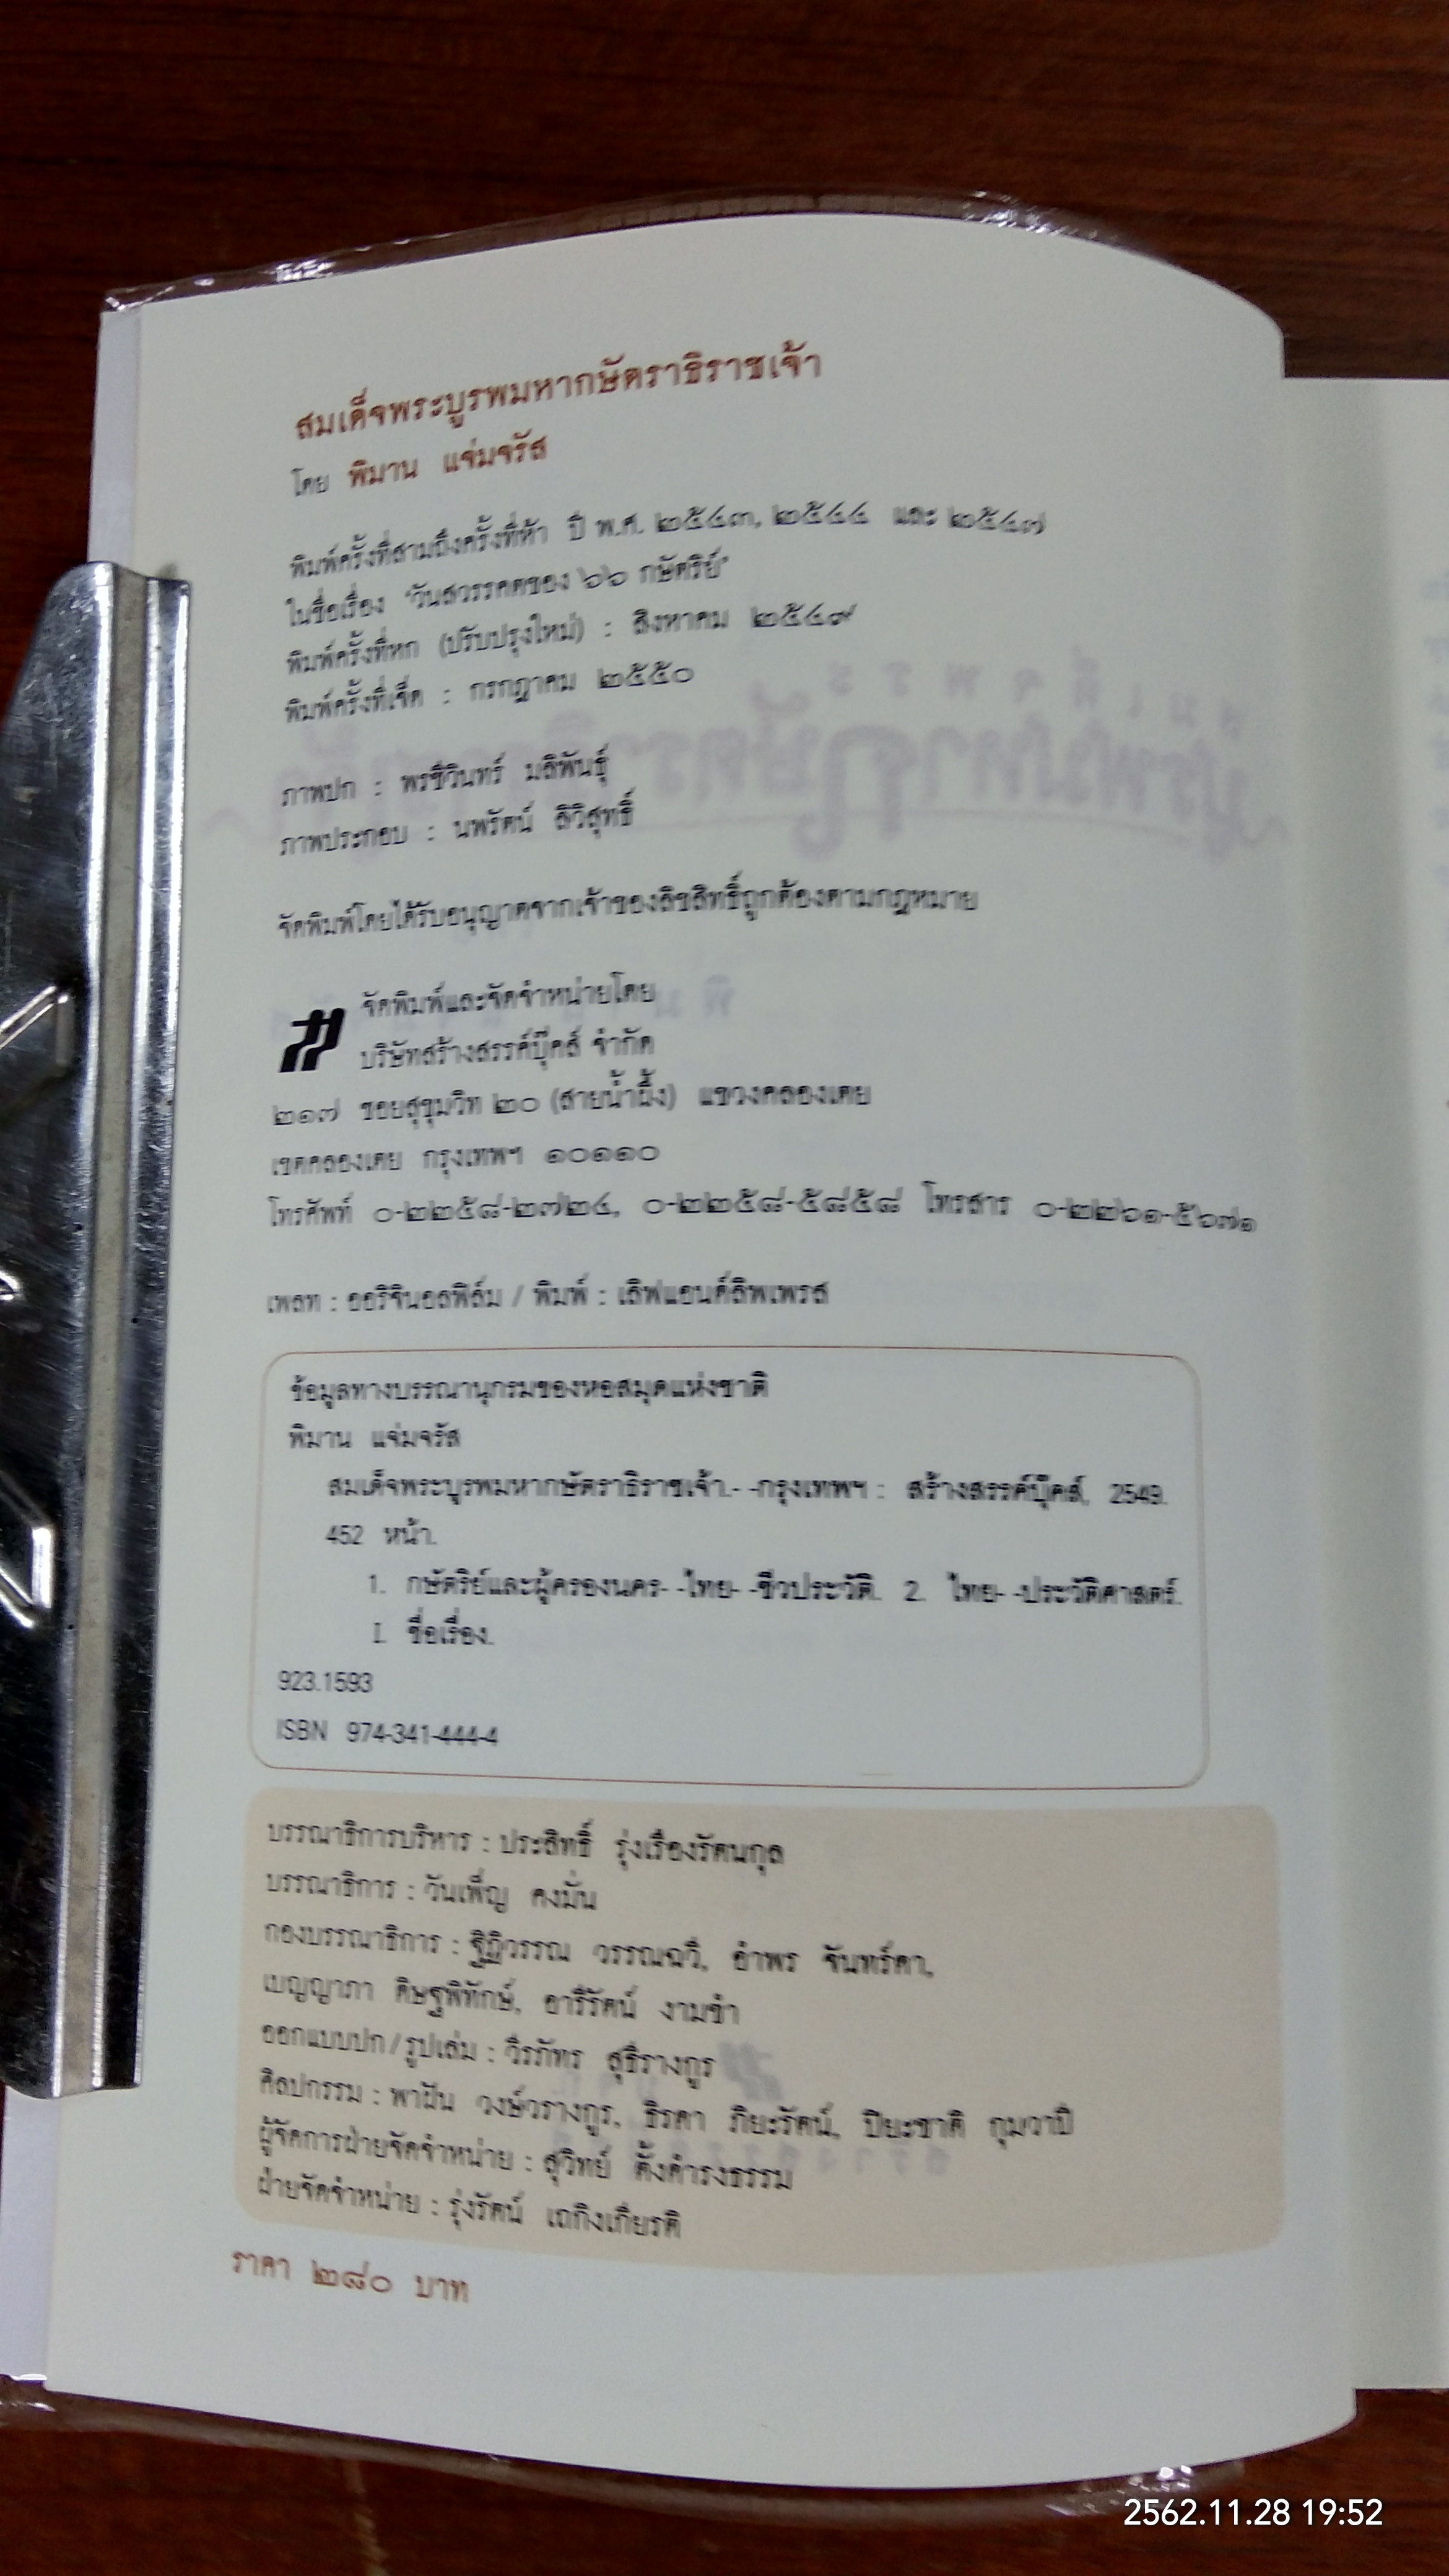 สมเด็จพระบูรพมหากษัตราธิราชเจ้า
โดย พิมาน แจ่มจรัส
พิมพ์ครั้งที่สามถึงครั้งที่ห้า ปี พ.ศ. ๒๕๔๓, ๒๕๔๔ และ ๒๕๔๗
ในชื่อเรื่อง "วันสวรรคตของ ๖๖ กษัตริย์"
พิมพ์ครั้งที่หก (ปรับปรุงใหม่) : สิงหาคม ๒๕๔๙
พิมพ์ครั้งที่เจ็ด : กรกฎาคม ๒๕๕๐
ภาพปก : พรชีวินทร์ มลิพันธุ์
ภาพประกอบ : นพรัตน์ ลิวิสุทธิ์
จัดพิมพ์โดยได้รับอนุญาตจากเจ้าของลิขสิทธิ์ถูกต้องตามกฎหมาย
จัดพิมพ์และจัดจำหน่ายโดย
บริษัทสร้างสรรค์บุ๊คส์ จำกัด
๒๑๗ ซอยสุขุมวิท ๒๐ (สายน้ำผึ้ง) แขวงคลองเตย
เขตคลองเตย กรุงเทพฯ ๑๐๑๑๐
โทรศัพท์ ๐-๒๒๕๘-๒๗๒๔, ๐-๒๒๕๘-๕๘๕๘ โทรสาร ๐-๒๒๖๑-๕๖๗๑
เพลท : ออริจินอลฟิล์ม / พิมพ์ : เลิฟแอนด์ลิพเพรส
ข้อมูลทางบรรณานุกรมของหอสมุดแห่งชาติ
พิมาน แจ่มจรัส
สมเด็จพระบูรพมหากษัตราธิราชเจ้า.- -กรุงเทพฯ : สร้างสรรค์บุ๊คส์, 2549.
452 หน้า.
1. กษัตริย์และผู้ครองนคร- -ไทย- -ชีวประวัติ. 2. ไทย- -ประวัติศาสตร์.
I. ชื่อเรื่อง.
923.1593
ISBN 974-341-444-4
บรรณาธิการบริหาร : ประสิทธิ์ รุ่งเรืองรัตนกุล
บรรณาธิการ : วันเพ็ญ คงมั่น
กองบรรณาธิการ : ฐิฏิวรรณ วรรณฉวี, อำพร จันทร์ดา,
เบญญาภา ดิษฐพิทักษ์, อารีรัตน์ งามขำ
ออกแบบปก/รูปเล่ม : วีรภัทร สุธีรางกูร
ศิลปกรรม : พาฝัน วงษ์วรางกูร, ธิรดา ภิยะรัตน์, ปิยะชาติ กุมวาปี
ผู้จัดการฝ่ายจัดจำหน่าย : สุวิทย์ ตั้งดำรงธรรม
ฝ่ายจัดจำหน่าย : รุ่งรัตน์ เถกิงเกียรติ
ราคา ๒๘๐ บาท
2562.11.28 19:52